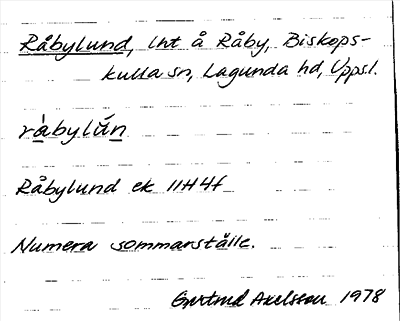 Råbylund, lht å Råby, Biskops-
kulla sn, Lagunda hd, Uppsl.
ràbylǘn
Råbylund ek 11H4f
Numera sommarställe.
Gertrud Axelsson 1978